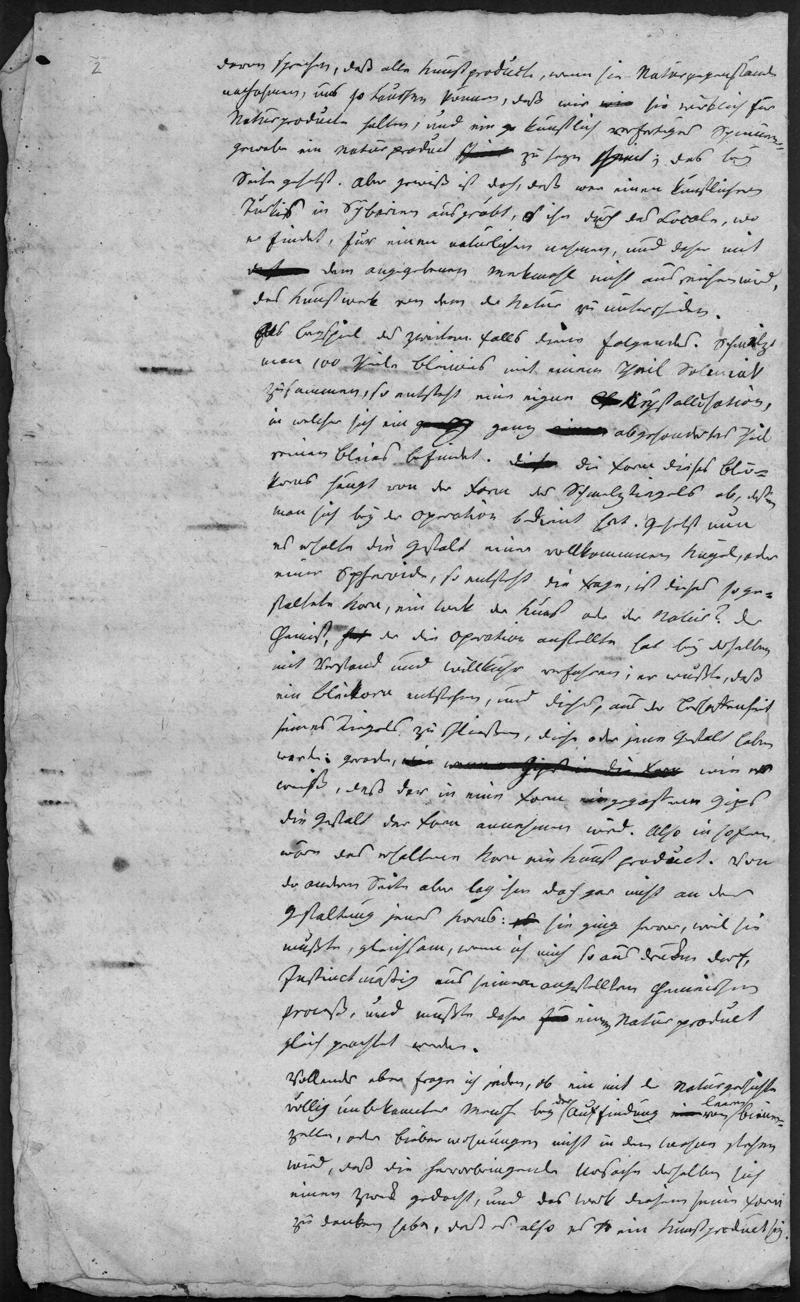 2
davon sprechen, daß alle Kunstproducte, wenn sie Naturgegenstände
nachahmen, uns so täuschen können, daß wir sie wirklich für
Naturproducte halten, und ein künstlich verfertigtes Spinnen-
gewebe ein Naturproduct zu seyn scheint; das bey
Seite gesetzt. Aber gewiß ist doch, daß wer einen künstlichen
in Siberien ausgräbt, ihn durch das Locale, wo
er findet, für einen natürlichen nehmen, und daher mit
dem angegebenen Merkmahl nicht ausreichen wird,
das Kunstwerk von dem der Natur zu unterscheiden.
Als Beyspiel des zweiten Falls diene folgendes. Schmelzt
man 100 Theile Bleies mit einem Theil
zusammen, so entsteht eine eigne Krystallisation,
in welcher sich ein ganz abgesondertes Theil
reinen Bleies befindet. die Form dieses Blei-
korns hängt von der Form des Schmelztiegels ab, dessen
man sich bey der Operation bedient hat. Gesetzt nun
es erhalte die Gestalt einer vollkommenen Kugel, oder
einer Sphäroide, so entsteht die Frage, ist dieses so ge-
staltete Korn, ein Werk der Kunst oder der Natur? Der
Chemist, der die Operation anstellte hat bey derselben
mit Verstand und Willkühr verfahren; er wußte, daß
ein Bleikorn entstehen, und dieses, aus der Beschaffenheit
seines Tiegels zu schließen, diese oder jene Gestalt haben
werde: gerade, wie er
weiß, daß der in eine Form eingegossene Gips
die Gestalt der Form annehmen wird. Also in sofern
wäre das erhaltene Korn ein Kunstproduct. Von
der andern Seite aber lag ihm doch gar nicht an der
Gestaltung jenes Korns: sie ging hervor, weil sie
mußte, gleichsam, wenn ich mich so ausdrücken darf,
Instinctmäßig aus seinem angestellten chemischen
Proceß, und müßte daher einem Naturproduct
gleich geachtet werden.
Vollends aber frage ich jeden, ob ein mit der Naturgeschichte
völlig unbekannter Mensch bey der Auffindung von leeren Bienen-
zellen, oder Bieberwohnungen nicht in dem Wahne stehen
wird, daß die hervorbringende Ursache derselben sich
einen Zweck gedacht, und das Werk diesem seine Form
zu danken habe, daß es also ein Kunstproduct sey.